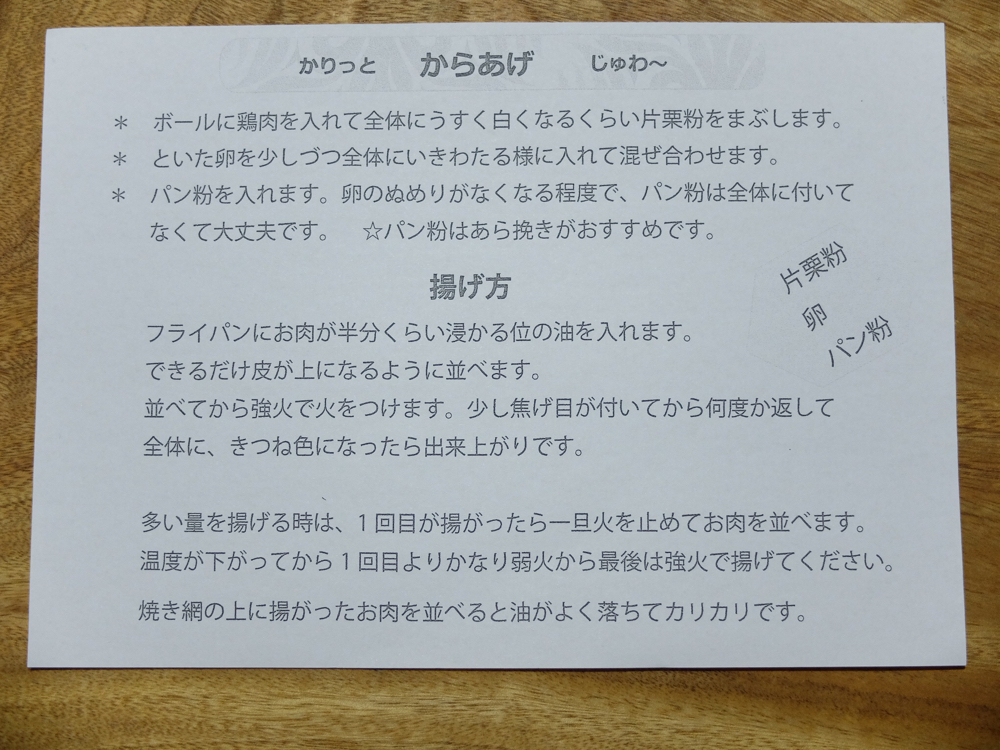 かりっと からあげ じゅわ～
＊ ボールに鶏肉を入れて全体にうすく白くなるくらい片栗粉をまぶします。
＊ といた卵を少しづつ全体にいきわたる様に入れて混ぜ合わせます。
＊ パン粉を入れます。卵のぬめりがなくなる程度で、パン粉は全体に付いて
なくて大丈夫です。 ☆パン粉はあら挽きがおすすめです。
片栗粉
卵
パン粉
揚げ方
フライパンにお肉が半分くらい浸かる位の油を入れます。
できるだけ皮が上になるように並べます。
並べてから強火で火をつけます。少し焦げ目が付いてから何度か返して
全体に、きつね色になったら出来上がりです。
多い量を揚げる時は、1回目が揚がったら一旦火を止めてお肉を並べます。
温度が下がってから1回目よりかなり弱火から最後は強火で揚げてください。
焼き網の上に揚がったお肉を並べると油がよく落ちてカリカリです。